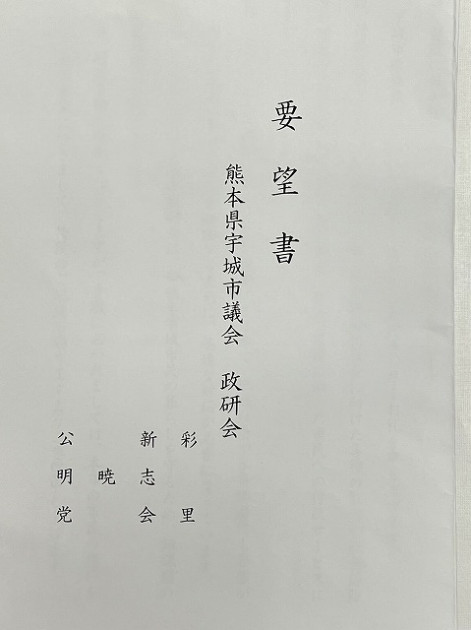 要望書
熊本県宇城市議会　政研会
彩里
新志会
暁
公明党